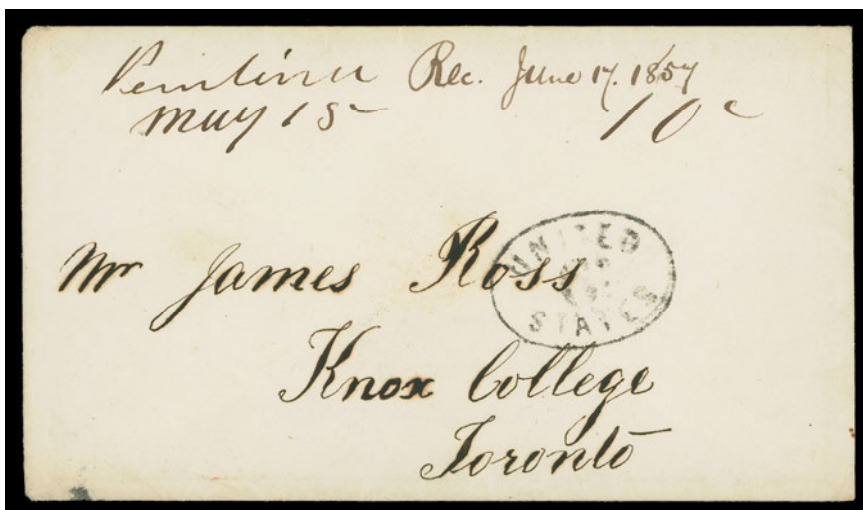 Pembina Rec. June 17. 1857
May 15 10c
Mr James Ross
UNITED
STATES
Knox College
Toronto